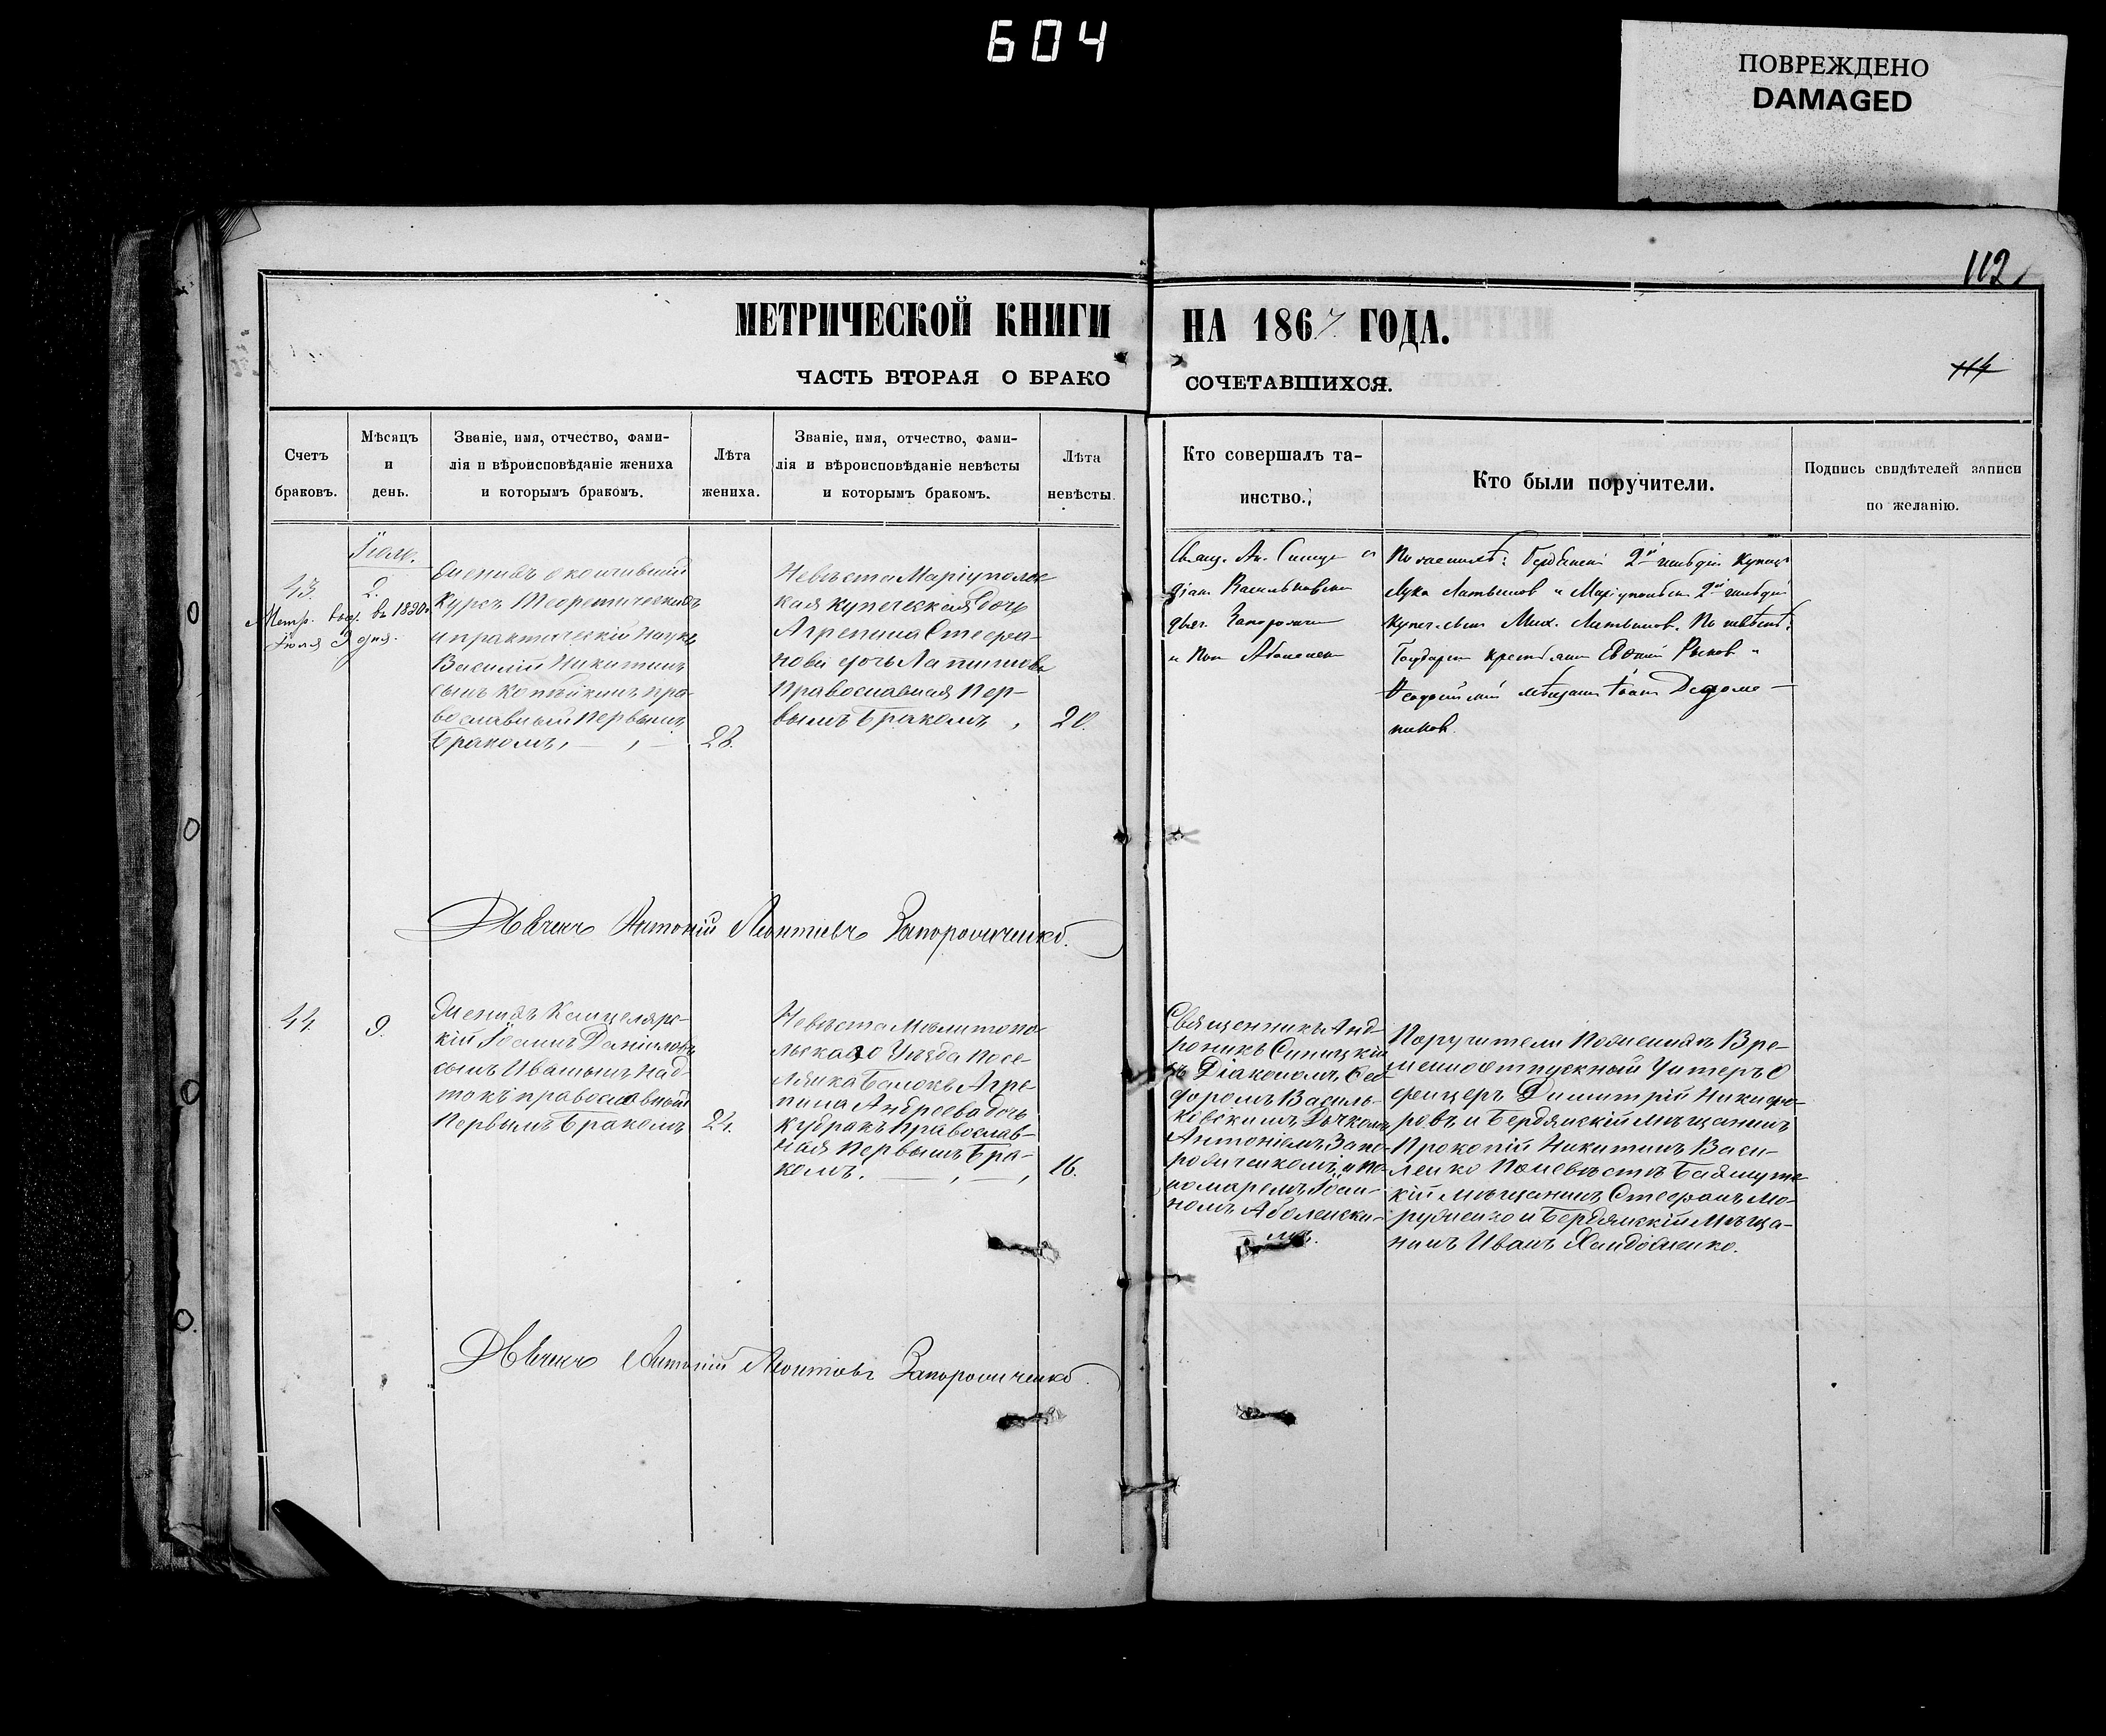 604
ПОВРЕЖДЕНО
DAMAGED
112
МЕТРИЧЕСКОЙ КНИГИ НА 1867 ГОДА.
ЧАСТЬ ВТОРАЯ О БРАКО СОЧЕТАВШИХСЯ.
114
Счетъ
браковъ.
Мѣсяцъ
и
день.
Званіе, имя, отчество, фами-
лія и вѣроисповѣданіе жениха
и которымъ бракомъ.
Лѣта
жениха.
Званіе, имя, отчество, фами-
лія и вѣроисповѣданіе невѣсты
и которымъ бракомъ.
Лѣта
невѣсты.
Кто совершалъ та-
инство.
Кто были поручители.
Подпись свидѣтелей записи
по желанію.
43.
Іюль.
2.
Метр. выд. въ 1890
Іюля 3 дня.
Женихъ окончившій
Курсъ Теоретическихъ
и практическій Наукъ
Василій Никитинъ
сынъ Копѣйкинъ пра-
вославный Первымъ
Бракомъ,
28.
Невѣста Маріуполь
ская купеческая дочь
Агрепина Стефа-
нова дочь Лапшина
Православная Пер-
вымъ Бракомъ,
20.
Свящ. Ан. Синиц
діак. Васильковски
дьяч. Запорожч
и Пон Аболенск
По женихѣ: Бердянскій 2й гильдіи Купецъ
Лука Литвинов и Маріупольск 2й гильдіи
Купеч. сынъ Мих. Литвинов. По невѣстѣ:
Государст крестьян Евфимій Рыков и
Феодосійскій мѣщанин Іоан
ников.
Дьячекъ Антоній Леонтіевъ Запорожченко.
44.
9.
Женихъ Канцеляре-
кій Іоаннъ Даніиловъ
сынъ Иваныць над-
токъ православный
Первымъ Бракомъ
24.
Невѣста Мѣлитопо
льскаго Уѣзда посе-
лянка Балокъ Агре-
пина Андреева дочь
Кудракъ Православ-
ная Первымъ Бра-
комъ.
16.
Священникъ Анд-
роникъ Синицкій
съ Діакономъ Фео-
форомъ Василь-
ковскимъ Дячкомъ
Антоніемъ Запо-
рожченкомъ и По-
номаремъ Іоан-
номъ Аболенски-
мъ.
Поручители По женихѣ Вре-
менноотпускный Унтеръ О
фицеръ Димитрій Никифо-
ровъ и Бердянскій Мѣщанинъ
Прокопій Никитинъ Васи-
ленко По невѣстѣ Бахмутс
кій Мѣщанинъ Стефанъ Мо-
рудненко и Бердянскій Мѣща-
нинъ Иванъ Хандоженко.
Дьячекъ Антоній Леонтіевъ Запорожченко